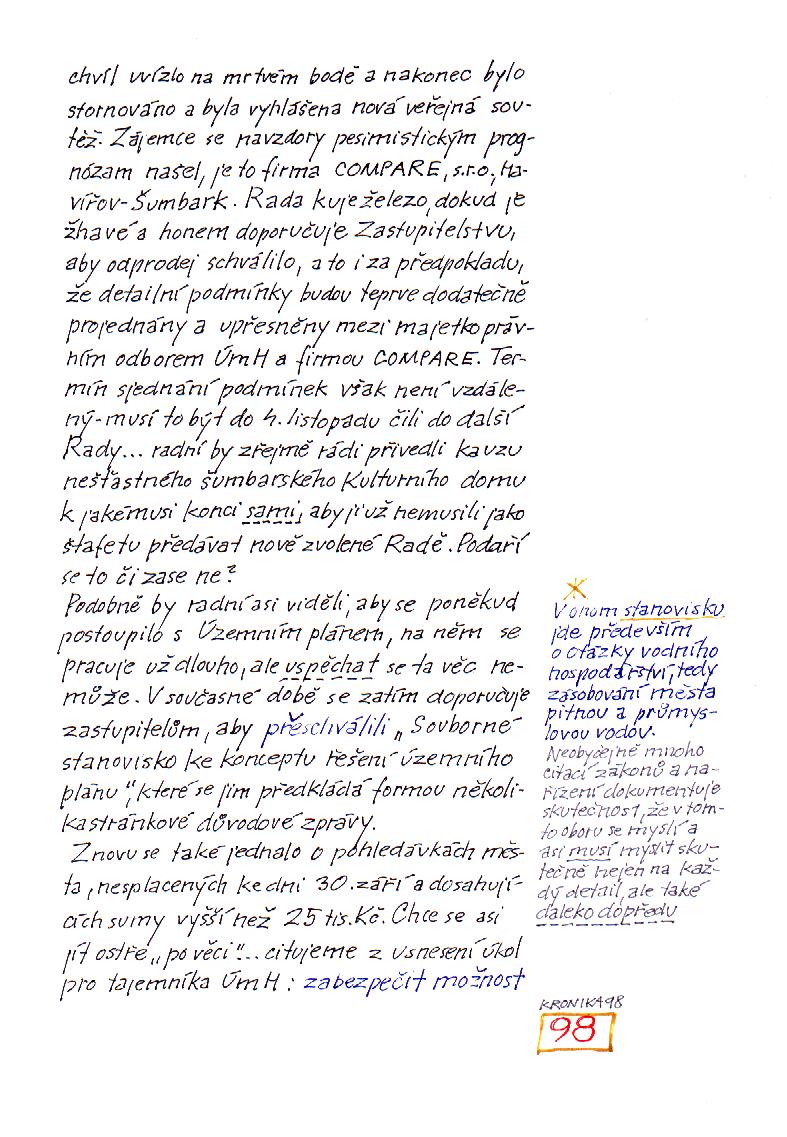 chvíl uvízlo na mrtvém bodě a nakonec bylo
stornováno a byla vyhlášena nová veřejná sou-
těž. Zájemce se navzdory pesimistickým prog-
nózam našel, je to firma COMPARE, s.r.o., Ha-
vířov-Šumbark. Rada kuje železo, dokud je
žhavé a honem doporučuje Zastupitelstvu,
aby odprodej schválilo, a to i za předpokladu,
že detailní podmínky budou teprve dodatečně
projednány a upřesněny mezi majetkopráv-
ním odborem ÚmH a firmou COMPARE. Ter-
mín sjednání podmínek však není vzdále-
ný-musí to být do 4. listopadu čili do další
Rady... radní by zřejmě rádi přivedli kauzu
nešťastného šumbarského Kulturního domu
k jakémusi konci sami, aby ji už nemusili jako
štafetu předávat nově zvolené Radě. Podaří
se to či zase ne?
Podobně by radní asi viděli, aby se poněkud
postoupilo s Územním plánem, na něm se
pracuje už dlouho, ale uspěchat se ta věc ne-
může. V současné době se zatím doporučuje
zastupitelům, aby přeschválili „Souborné
stanovisko ke konceptu řešení územního
plánu“, které se jim předkládá formou několi-
kastránkové důvodové zprávy.
Znovu se také jednalo o pohledávkách měs-
ta, nesplacených ke dni 30. září a dosahují-
cích sumy vyšší než 25 tis. Kč. Chce se asi
jít ostře „po věci“... citujeme z usnesení úkol
pro tajemníka ÚmH: zabezpečit možnost
V onom stanovisku
jde především
o otázky vodního
hospodářství, tedy
zásobování města
pitnou a průmys-
lovou vodou.
Neobyčejně mnoho
citací zákonů a na-
řízení dokumentuje
skutečnost, že v tom-
to oboru se myslí a
asi musí myslit sku-
tečně nejen na kaž-
dý detail, ale také
daleko dopředu
KRONIKA 98
98